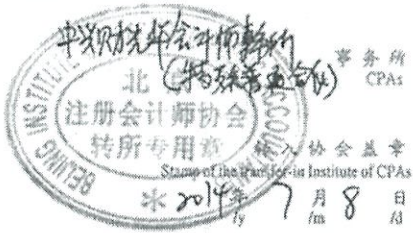 中兴财光华会计师事务所
(特殊普通合伙)
事务所
CPAs
BEIJING INSTITUTE
北
注册会计师协会
转所专用章
转入协会盖章
Stamp of the transfer-in Institute of CPAs
2014年 7月 8日
/y /m /d